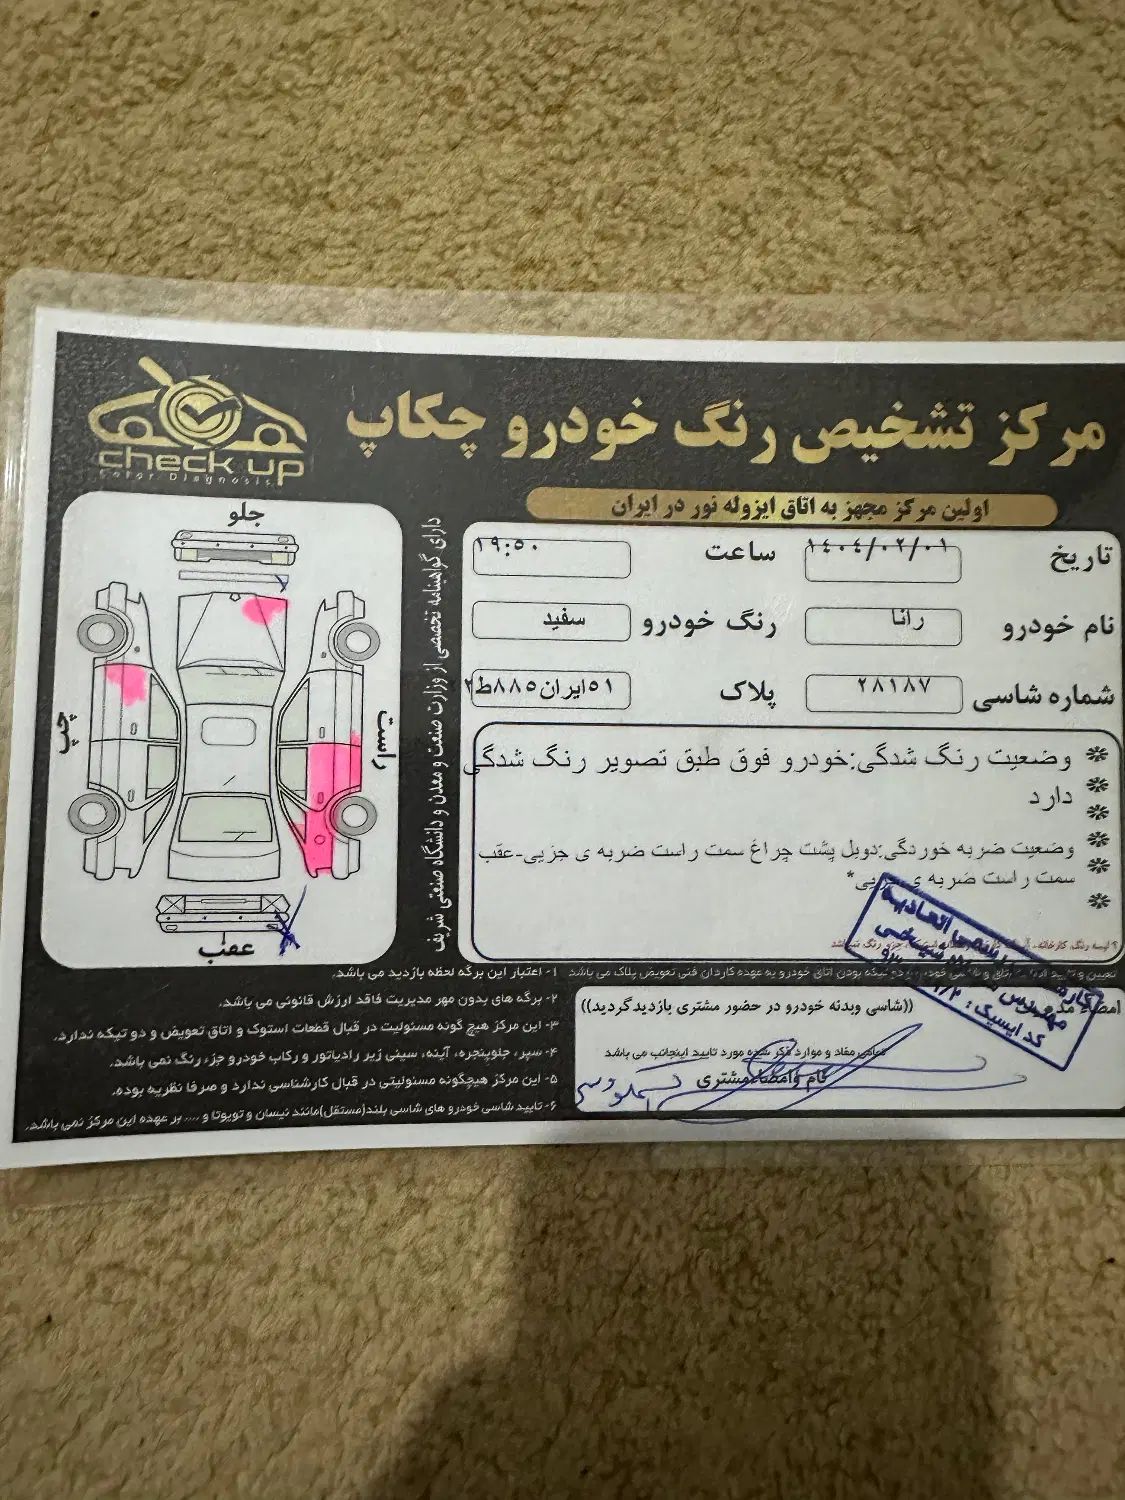 مرکز تشخیص رنگ خودرو چکاپ
check up
Color Diagnosis
اولین مرکز مجهز به اتاق ایزوله نور در ایران
تاریخ ۱۴۰۴/۰۲/۰۱ ساعت ۱۹:۵۰
نام خودرو رانا رنگ خودرو سفید
شماره شاسی ۲۸۱۸۷ پلاک ۵۱ایران۸۸۵ط۲
وضعیت رنگ شدگی:خودرو فوق طبق تصویر رنگ شدگی
دارد
وضعیت ضربه خوردگی:دوبل پشت چراغ سمت راست ضربه ی جزیی-عقب
سمت راست ضربه ی جزیی*
دارای گواهینامه تخصصی از وزارت صنعت و معدن و دانشگاه صنعتی شریف
جلو
چپ
راست
عقب
((شاسی وبدنه خودرو در حضور مشتری بازدید گردید))
تمامی مفاد و موارد ذکر شده مورد تایید اینجانب می باشد
نام وامضاء مشتری
۱- اعتبار این برگه لحظه بازدید می باشد.
۲- برگه های بدون مهر مدیریت فاقد ارزش قانونی می باشد.
۳- این مرکز هیچ گونه مسئولیت در قبال قطعات استوک و اتاق تعویض و دو تیکه ندارد.
۴- سپر، جلوپنجره، آینه، سینی زیر رادیاتور و رکاب خودرو جزء رنگ نمی باشد.
۵- این مرکز هیچگونه مسئولیتی در قبال کارشناسی ندارد و صرفا نظریه بوده.
۶- تایید شاسی خودرو های شاسی بلند(مستقل)مانند نیسان و تویوتا و .... بر عهده این مرکز نمی باشد.